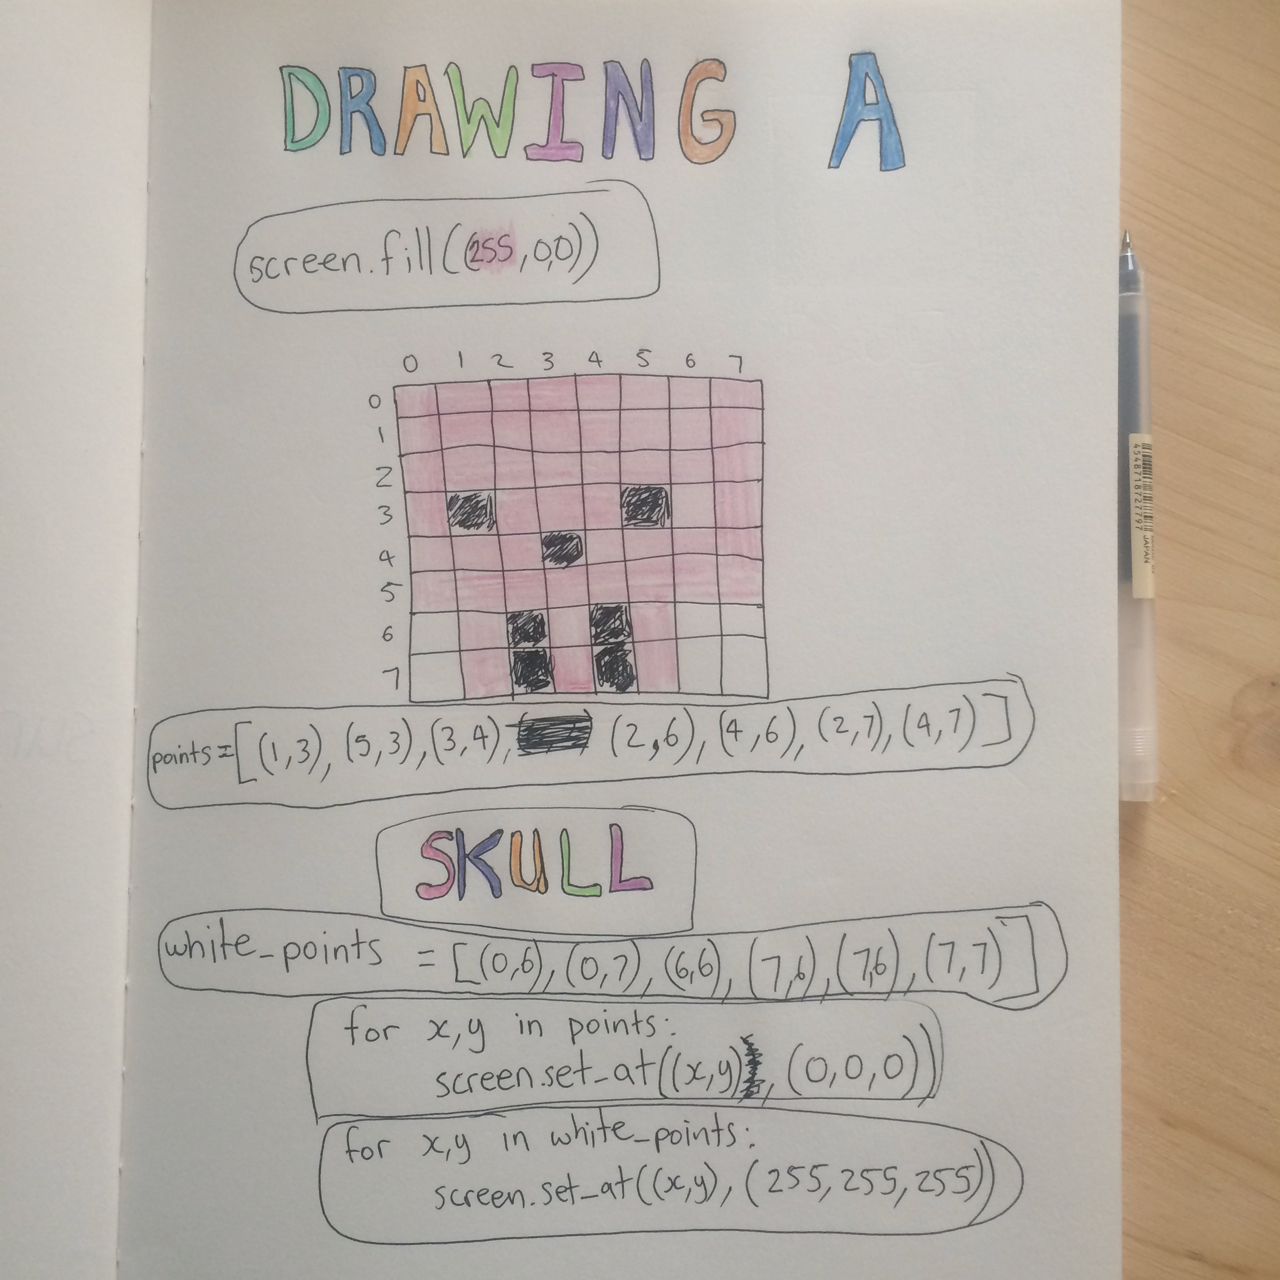 DRAWING A
screen.fill((255,0,0))
0 1 2 3 4 5 6 7
0
1
2
3
4
5
6
7
points=[(1,3), (5,3),(3,4), (2,6), (4,6), (2,7), (4,7)]
SKULL
white_points = [(0,6), (0,7), (6,6), (7,6), (7,6), (7,7)]
for x,y in points:
screen.set_at((x,y), (0,0,0))
for x,y in white_points:
screen.set_at((x,y), (255,255,255))
JAPAN